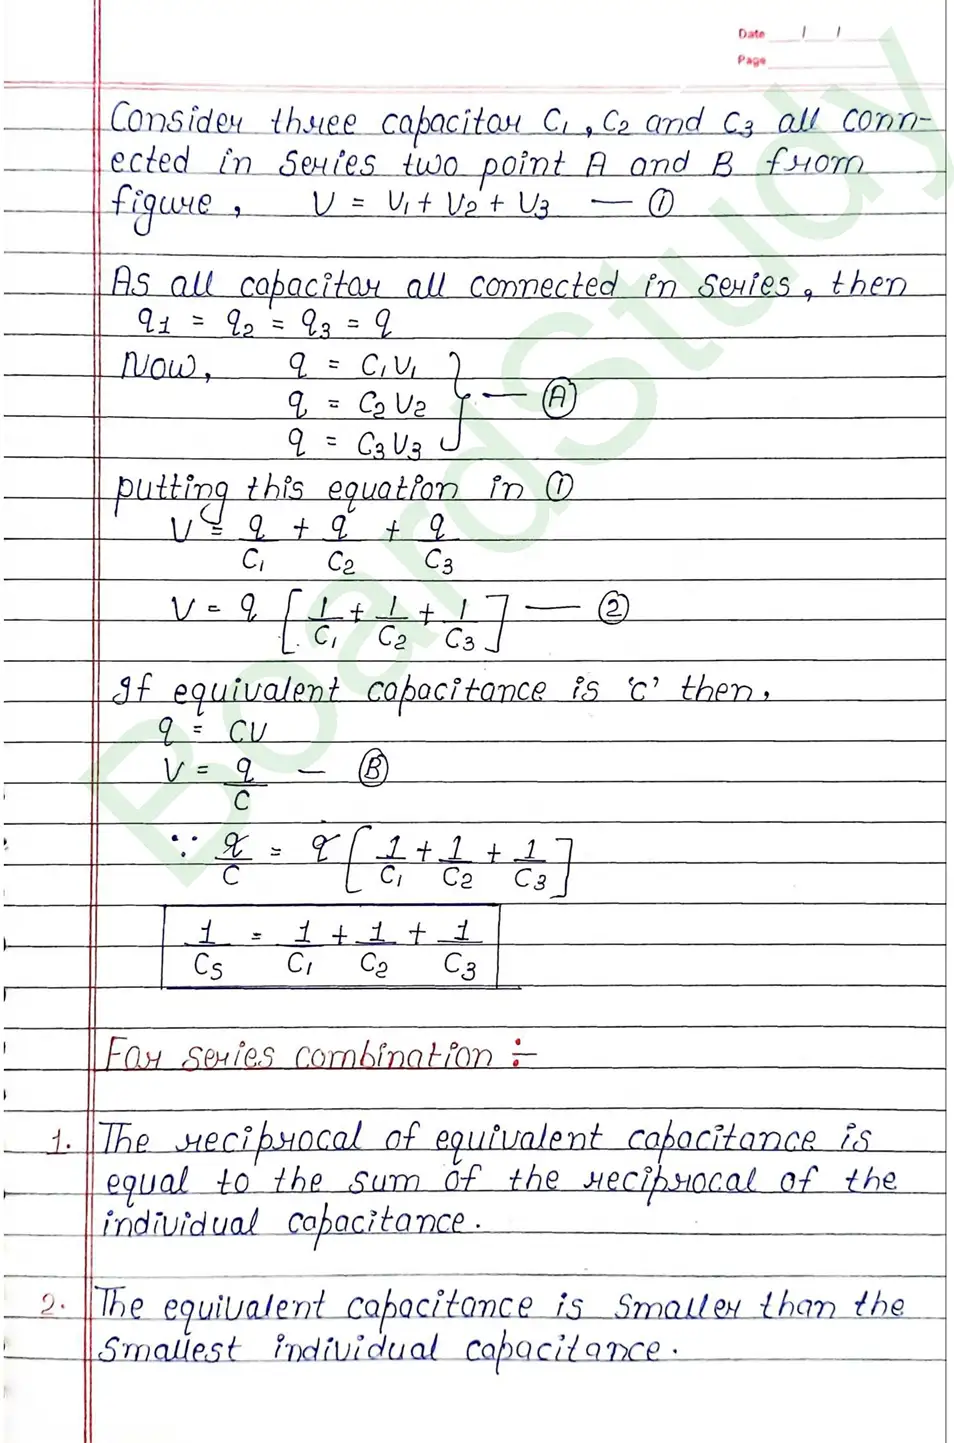 Date / /
Page
Consider three capacitor C₁, C₂ and C₃ all conn-
ected in series two point A and B from
figure, V = V₁ + V₂ + V₃ — ①
As all capacitor all connected in series, then
q₁ = q₂ = q₃ = q
Now, q = C₁V₁
q = C₂V₂ } — Ⓐ
q = C₃V₃
putting this equation in ①
V = q/C₁ + q/C₂ + q/C₃
V = q [1/C₁ + 1/C₂ + 1/C₃] — ②
If equivalent capacitance is 'C' then,
q = CV
V = q/C — Ⓑ
∵ q/C = q [1/C₁ + 1/C₂ + 1/C₃]
1/Cs = 1/C₁ + 1/C₂ + 1/C₃
For series combination ÷
1. The reciprocal of equivalent capacitance is
equal to the sum of the reciprocal of the
individual capacitance.
2. The equivalent capacitance is smaller than the
smallest individual capacitance.
BoardStudy